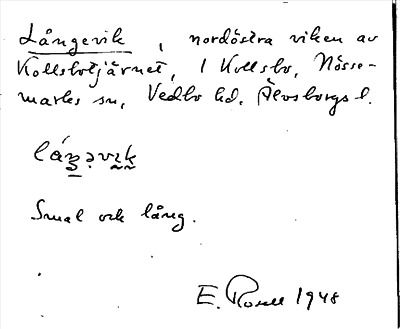 Långevik, nordöstra viken av
Kollsbotjärnet, 1 Kollsbo, Nösse-
marks sn, Vedbo hd. Älvsborgs l.
Smal och lång.
E. Rosell 1948